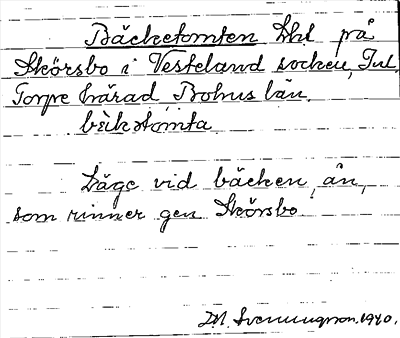 Bäcketomten Lht på
Skörsbo i Vesteland socken, Inl.
Torpe härad, Bohus län.
bɛ̀kətomta
Läge vid bäcken, ån,
som rinner gen Skörsbo
D.M. Svenningsson. 1940.